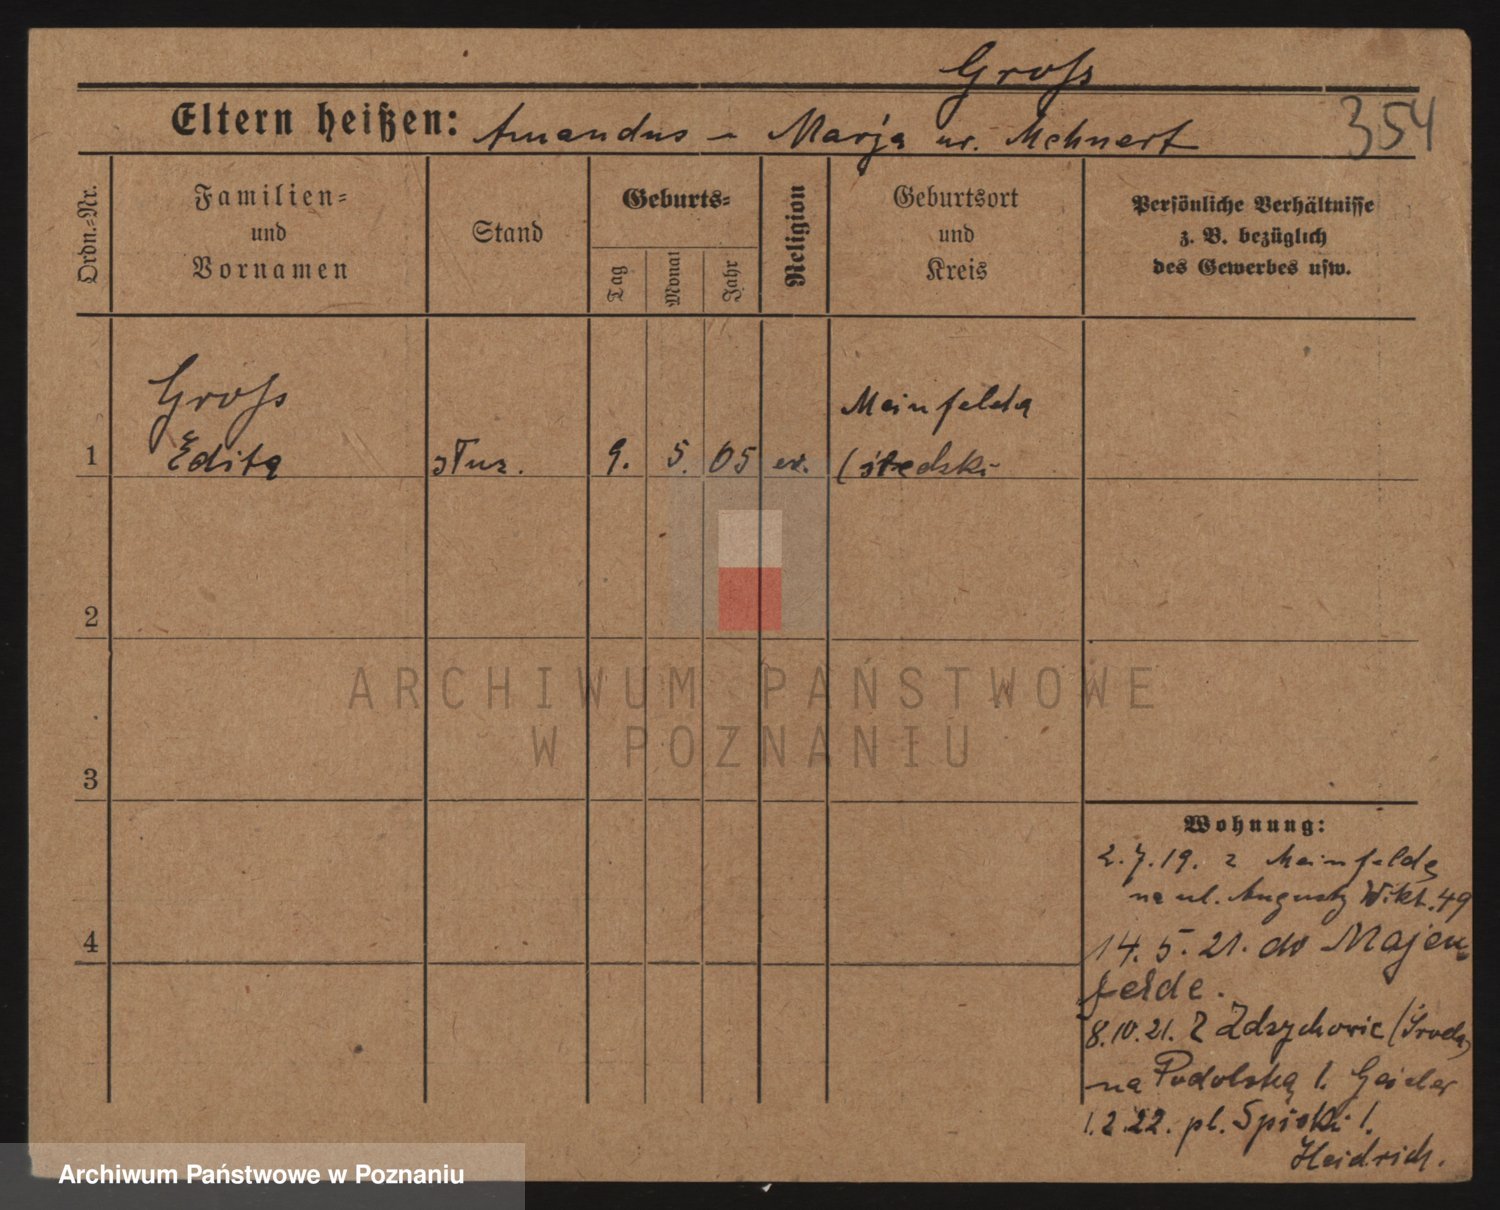 Gross
Eltern heißen: Amandus - Marja ur. Mehnert
354
Ordn.=Nr.
Familien=
und
Vornamen
Stand
Geburts=
Tag
Monat
Jahr
Religion
Geburtsort
und
Kreis
Persönliche Verhältnisse
z. B. bezüglich
des Gewerbes usw.
1
Gross
Edita
służ.
9. 5. 05
ew.
Meinfelda
(średzki
2
3
4
Wohnung:
2.7.19. z Meinfelde
na ul. Augusty Wikt. 49
14. 5. 21. do Majen
felde.
8.10.21. z Zdzychowic (Środa)
na Podolską 1.
1.2.22. pl. Spiski 1.
Heidrich.
ARCHIWUM PAŃSTWOWE
W POZNANIU
Archiwum Państwowe w Poznaniu